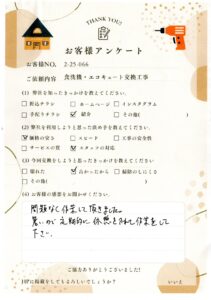 THANK YOU!
お客様アンケート
お客様NO. 2-25-066
ご依頼内容 食洗機・エコキュート交換工事
(1) 弊社を知ったきっかけを教えてください。
□折込チラシ □ホームページ □インスタグラム
□手配りチラシ ☑紹介 □その他( )
(2) 弊社を利用しようと思った決め手を教えてください。
☑価格の安さ □スピード □工事の安全性
□サービスの質 ☑スタッフの対応
(3) 今回交換をしようと思ったきっかけを教えてください。
□壊れた ☑古かったから □掃除のしにくさ
□その他( )
(4) お客様の感想をお聞かせください。
問題なく作業して頂きました。
暑いので定期的に休憩をとられて作業をして
下さい。
ご協力ありがとうございました!
HPに掲載をしてもよろしいでしょうか? いいえ